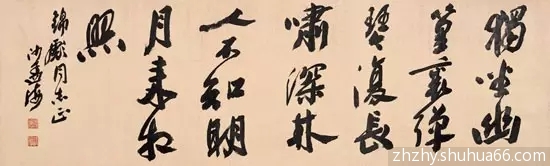 獨坐幽
篁裏彈
琴復長
嘯深林
人不知明
月来相
照
錦同志正
沙孟海
zhzhy.shuhua66.com